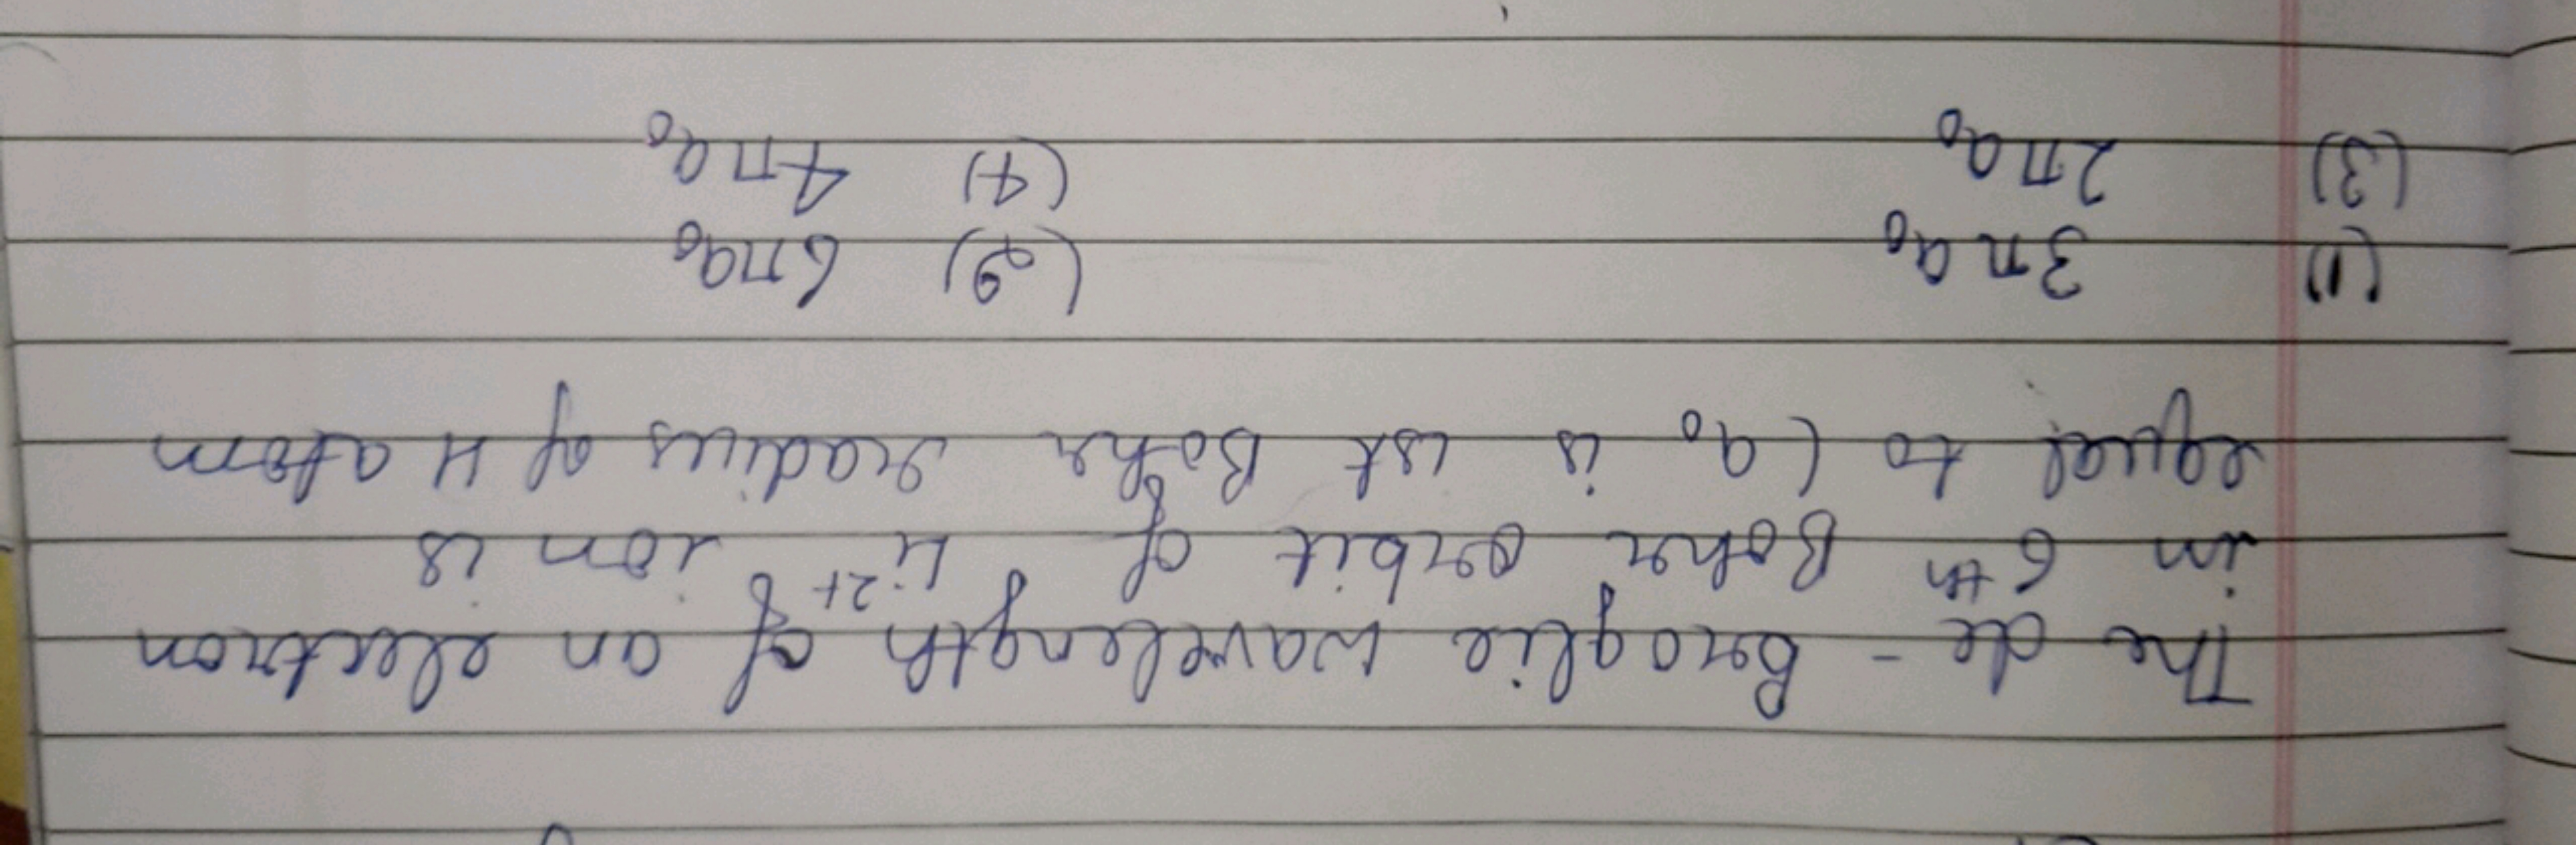 The de - Broglie wavelength of an electron
in 6th Bohr orbit of Li2+ ion is
equal to (a0 is ist Bohr radius of H atom
(1) 3πa0 (2) 6πa0
(3) 2πa0 (4) 4πa0